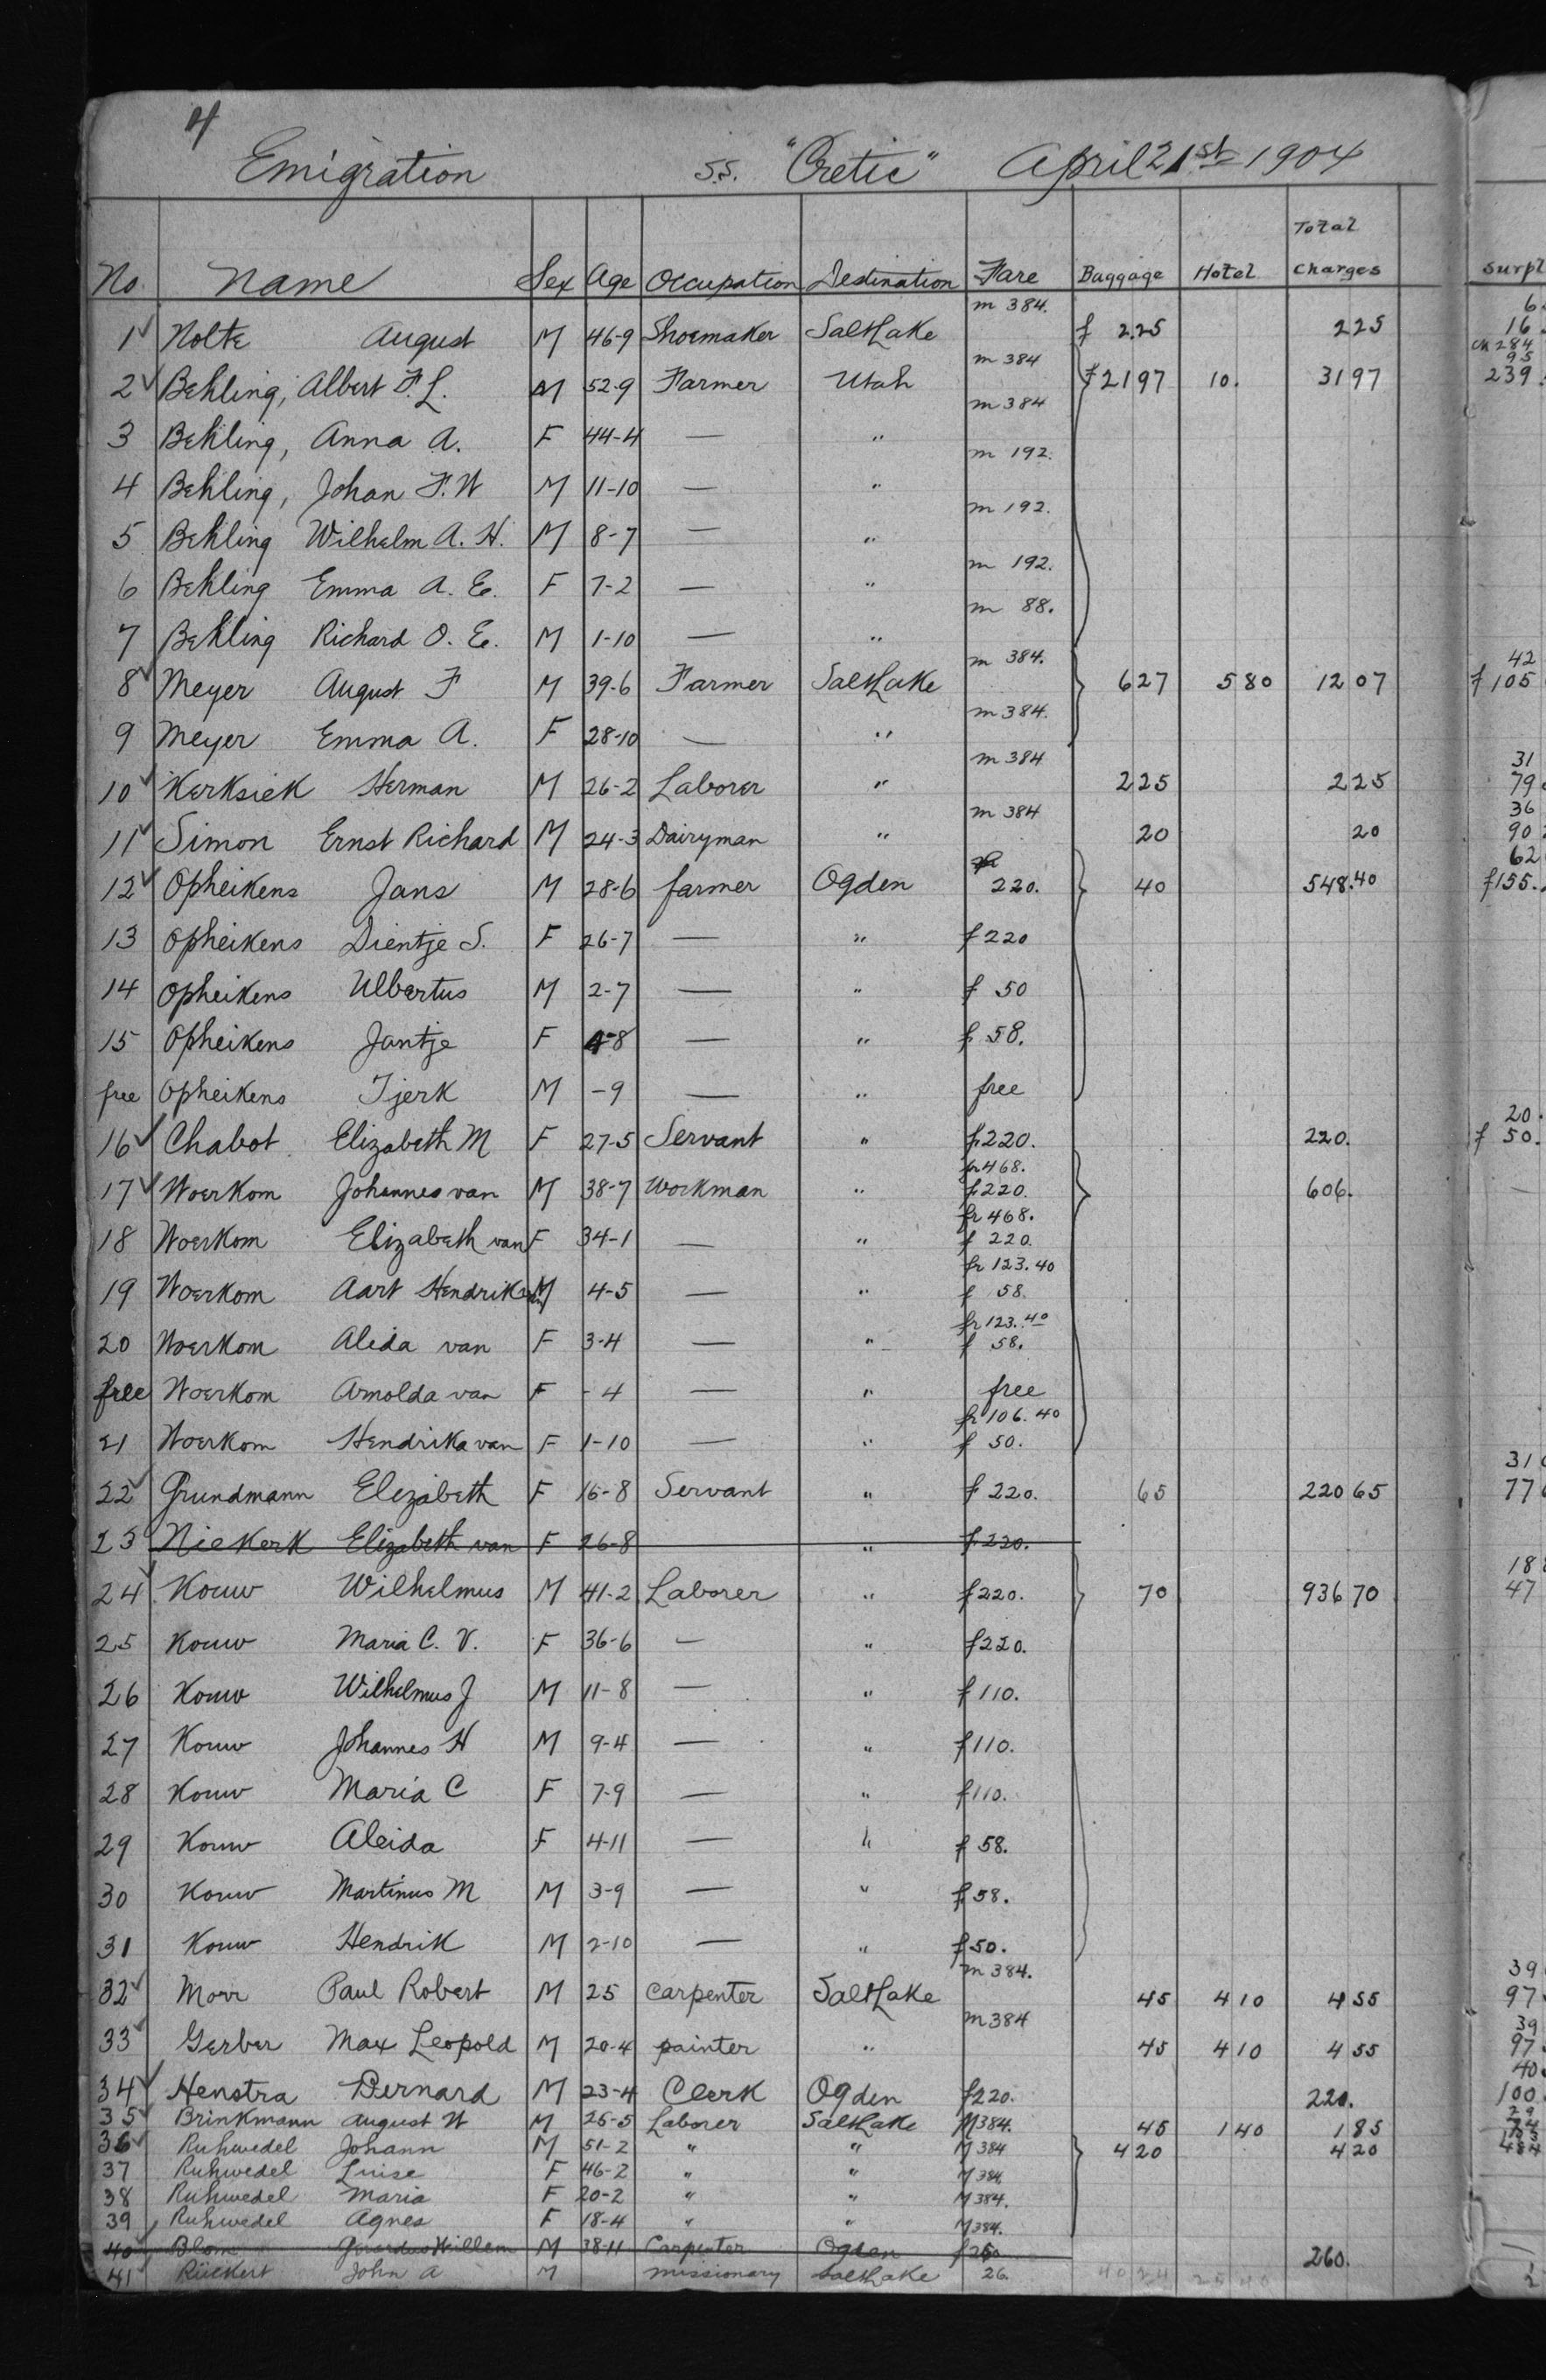 4
Emigration S.S. "Cretic" April 21st 1904
No. Name Sex Age Occupation Destination Fare Baggage Hotel Total Charges Surpl
1 ✓ Nolte August M 46-9 Shoemaker SaltLake m 384. f 2.25 225 16
2 ✓ Behling, Albert F. L. M 52-9 Farmer Utah m 384 f 2197 10. 3197 239
3 Behling, Anna A. F 44-4 — " m 384
4 Behling, Johan F. W M 11-10 — " m 192.
5 Behling Wilhelm A. H. M 8-7 — " m 192.
6 Behling Emma A. E. F 7-2 — " m 192.
7 Behling Richard O. E. M 1-10 — " m 88.
8 ✓ Meyer August F M 39-6 Farmer SaltLake m 384. 627 580 1207 42 f 105
9 Meyer Emma A. F 28-10 — " m 384.
10 ✓ Kerksiek Herman M 26-2 Laborer " m 384 225 225 31 79
11 ✓ Simon Ernst Richard M 24-3 Dairyman " m 384 20 20 36 90
12 ✓ Opheikens Jans M 28-6 farmer Ogden 220. 40 548.40 62 f 155.
13 Opheikens Dientje S. F 26-7 — " f 220
14 Opheikens Ulbertus M 2-7 — " f 50
15 Opheikens Jantje F 4-8 — " f 58.
free Opheikens Tjerk M -9 — " free
16 ✓ Chabot Elizabeth M F 27-5 Servant " f 220. 220. 20. f 50.
17 ✓ Woerkom Johannes van M 38-7 Workman " fr 468. f 220. 606.
18 Woerkom Elizabeth van F 34-1 — " fr 468. f 220.
19 Woerkom Aart Hendrik van M 4-5 — " fr 123.40 f 58.
20 Woerkom Aleida van F 3-4 — " fr 123.40 f 58.
free Woerkom Arnolda van F -4 — " free
21 Woerkom Hendrika van F 1-10 — " fr 106.40 f 50.
22 ✓ Grundmann Elezabeth F 16-8 Servant " f 220. 65 220 65 31 77
23 Niekerk Elizabeth van F 26-8 " f 220.
24 ✓ Kouw Wilhelmus M 41-2 Laborer " f 220. 70 936 70 18 47
25 Kouw Maria C. V. F 36-6 — " f 220.
26 Kouw Wilhelmus J M 11-8 — " f 110.
27 Kouw Johannes H M 9-4 — " f 110.
28 Kouw Maria C F 7-9 — " f 110.
29 Kouw Aleida F 4-11 — " f 58.
30 Kouw Martinus M M 3-9 — " f 58.
31 Kouw Hendrik M 2-10 — " f 50.
32 ✓ Morr Paul Robert M 25 carpenter SaltLake m 384. 45 410 455 39 97
33 ✓ Gerber Max Leopold M 20-4 painter " m 384 45 410 455 39 97
34 ✓ Henstra Bernard M 23-4 Clerk Ogden f 220. 220. 40 100
35 ✓ Brinkmann August W M 25-5 Laborer SaltLake M 384. 45 140 185
36 ✓ Ruhwedel Johann M 51-2 " " M 384 420 420
37 Ruhwedel Luise F 46-2 " " M 384.
38 Ruhwedel Maria F 20-2 " " M 384.
39 Ruhwedel Agnes F 18-4 " " M 384.
40 Blom Gerardus Willem M 38-11 Carpenter Ogden f 260. 260.
41 Rückert John A M missionary SaltLake 26.